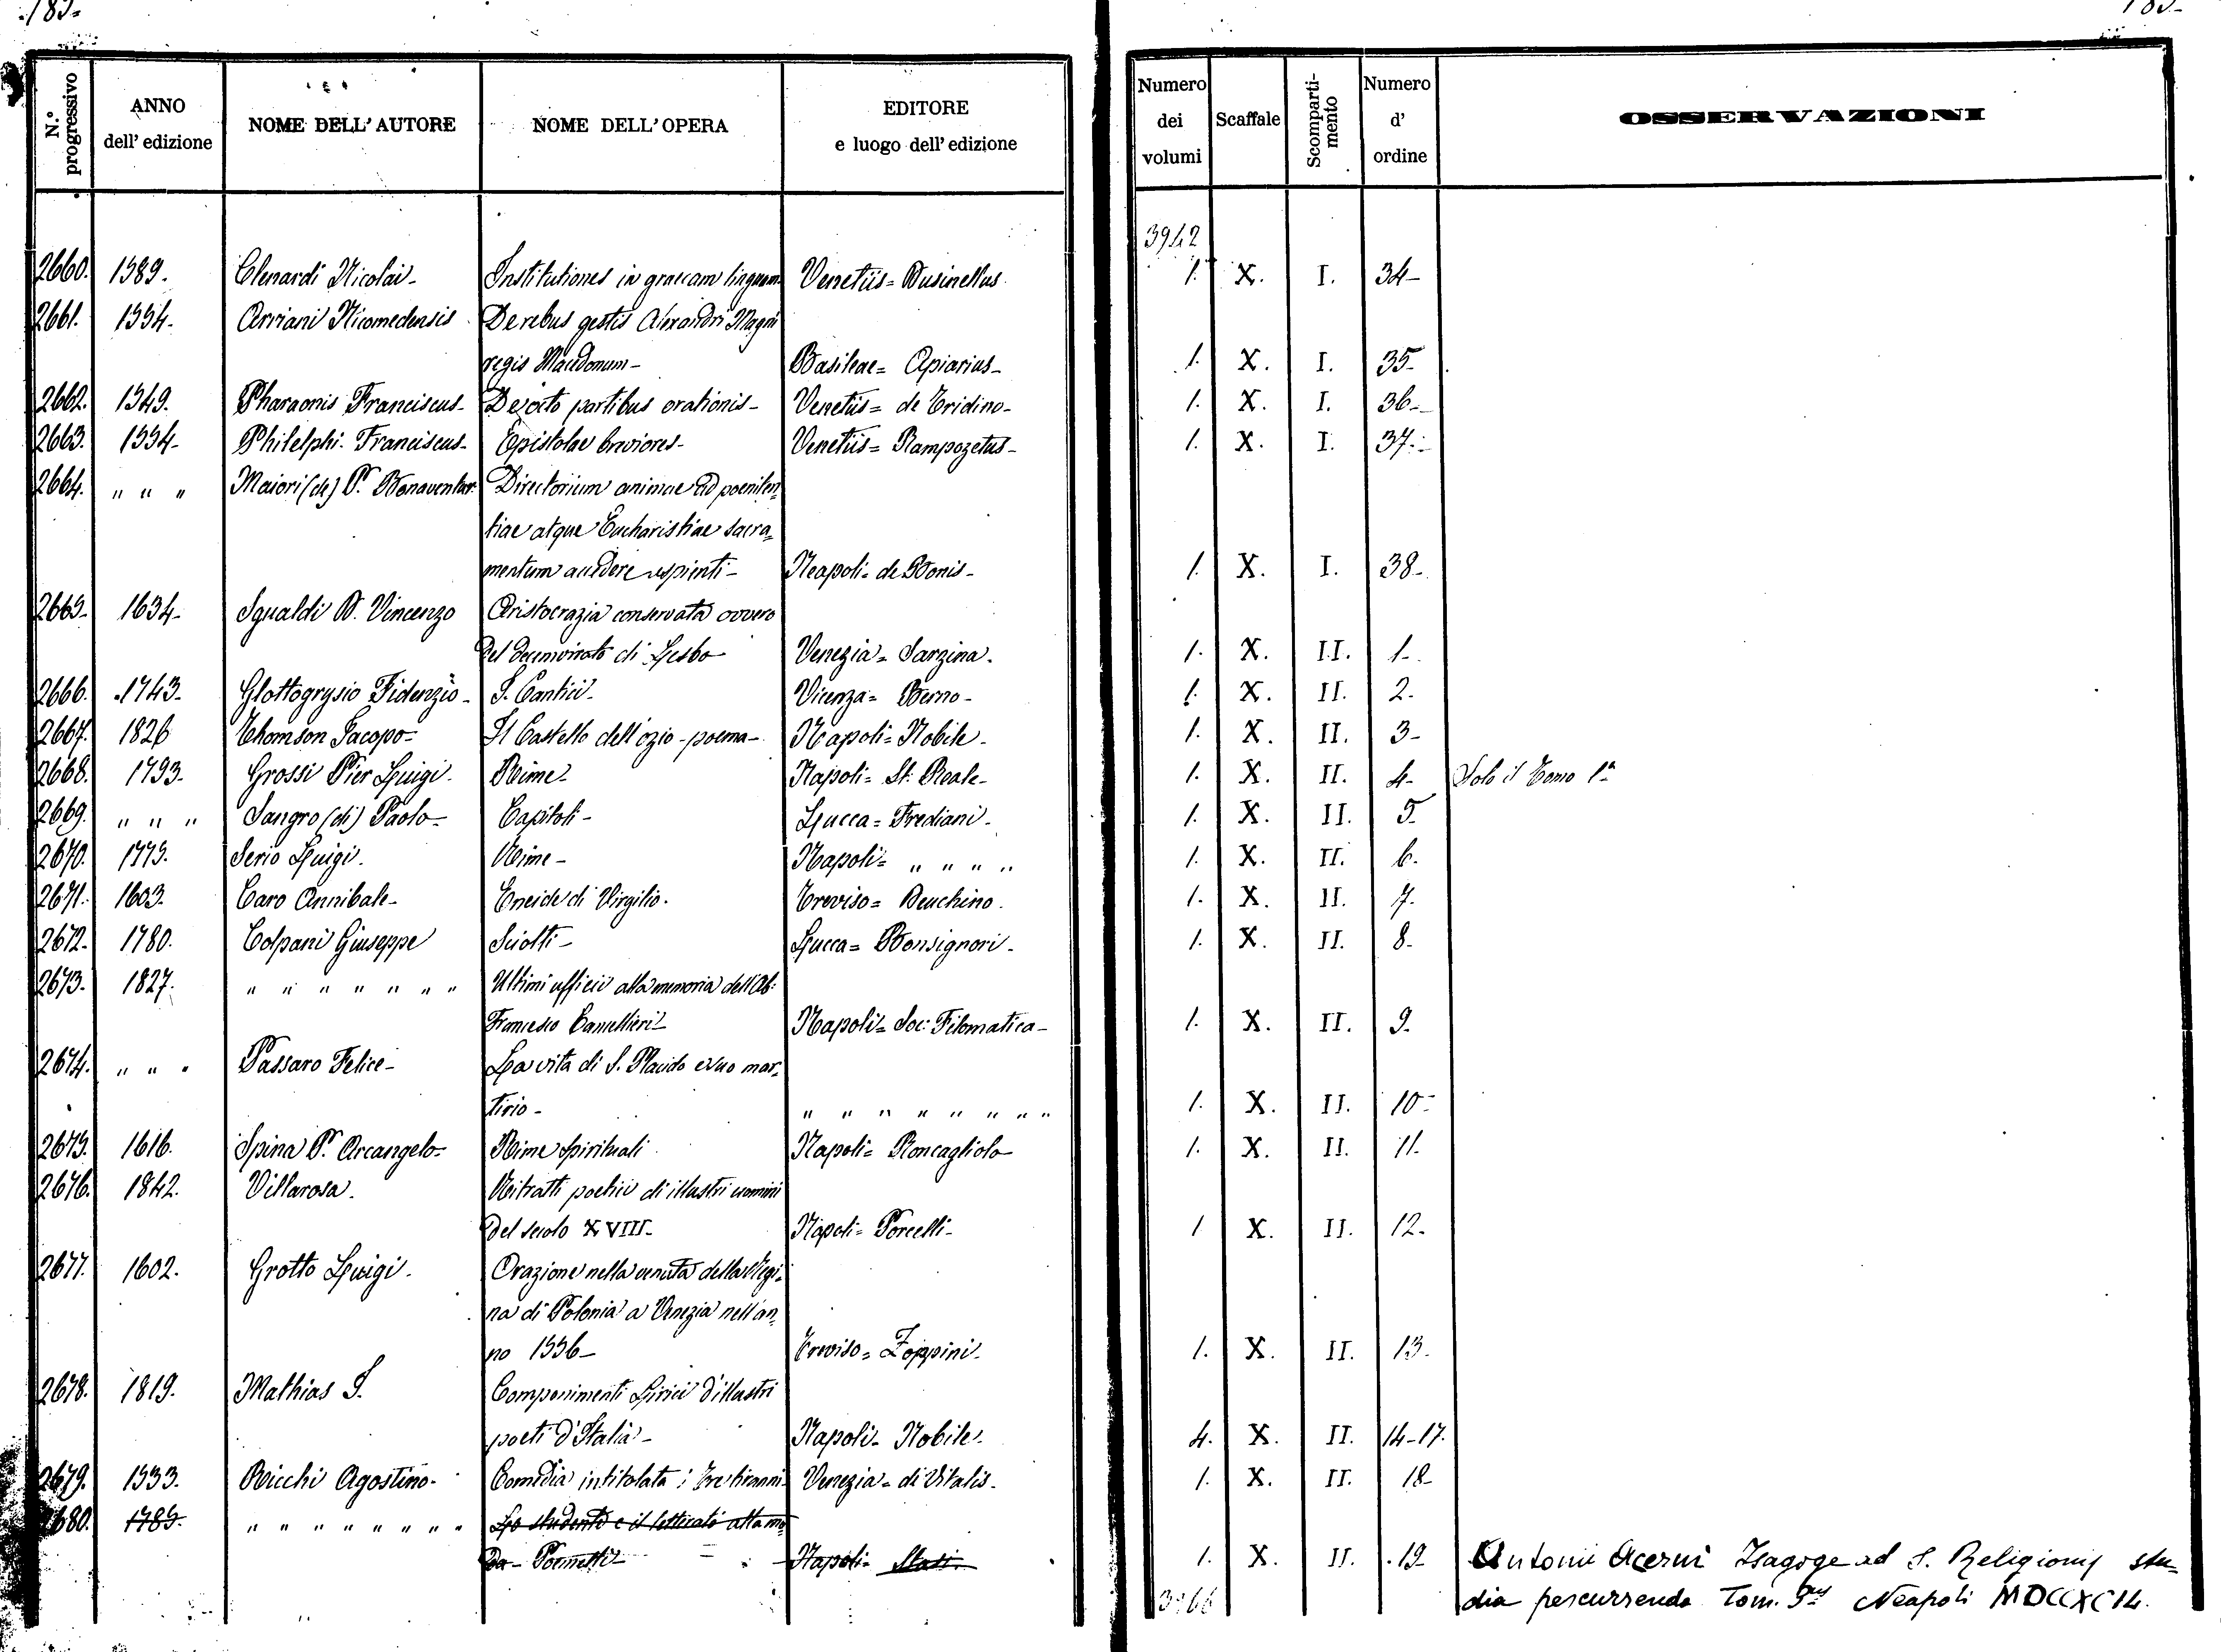 185-
185-
N.° progressivo | ANNO dell' edizione | NOME DELL' AUTORE | NOME DELL' OPERA | EDITORE e luogo dell' edizione | Numero dei volumi | Scaffale | Scomparti-mento | Numero d' ordine | OSSERVAZIONI
3942
2660. 1589. Clenardi Nicolai- Institutiones in graecam linguam Venetiis= Businellus 1. X. I. 34-
2661. 1554. Arriani Nicomedensis De rebus gestis Alexandri Magni
regis Macedonum- Basileae= Apiarius- 1. X. I. 35-
2662. 1549. Pharaonis Franciscus- De octo partibus orationis- Venetiis= de Tridino- 1. X. I. 36-
2663. 1554- Philelphi Franciscus- Epistolae breviores- Venetiis= Rampazetus- 1. X. I. 37-
2664. " " " Maiori (de) P. Bonaventur. Directorium animae ad poeniten=
tiae atque Eucharistiae sacra=
mentum accedere cupienti- Neapoli= de Bonis- 1. X. I. 38-
2665- 1634- Squaldi D. Vincenzo Aristocrazia conservata ovvero
del decemvirato di Lesbo- Venezia= Sarzina. 1. X. II. 1-
2666. 1743- Glottogrysio Fidenzio- I. Cantici- Vicenza= Berno- 1. X. II. 2-
2667. 1826 Thomson Jacopo- Il Castello dell'ozio-poema- Napoli= Nobile- 1. X. II. 3-
2668. 1793- Grossi Pier Luigi. Rime- Napoli= St: Reale- 1. X. II. 4- Solo il Tomo 1°
2669. " " " Sangro (di) Paolo- Capitoli- Lucca= Frediani- 1. X. II. 5-
2670. 1775. Serio Luigi. Rime- Napoli= " " " " 1. X. II. 6.
2671. 1603. Caro Annibale- Eneide di Virgilio. Treviso= 1. X. II. 7.
2672- 1780. Colpani Giuseppe Sciolti- Lucca= Bonsignori- 1. X. II. 8-
2673. 1827. " " " " " " " Ultimi ufficii alla memoria dell'Ab:
Francesco Cancellieri- Napoli= Soc: Filomatica- 1. X. II. 9-
2674. " " " Passaro Felice- La vita di S. Placido e suo mar=
tirio- " " " " " " " " 1. X. II. 10-
2675. 1616. Spina P. Arcangelo- Rime spirituali Napoli= Roncagliolo- 1. X. II. 11-
2676. 1842. Villarosa. Ritratti poetici di illustri uomini
del secolo XVIII- Napoli= Porcelli- 1 X. II. 12-
2677. 1602. Grotto Luigi. Orazione nella venuta della Regi=
na di Polonia a Venezia nell'an=
no 1556- Treviso= Zoppini- 1. X. II. 13-
2678. 1819. Mathias S. Componimenti Lirici d'illustri
poeti d'Italia- Napoli- Nobile- 4. X. II. 14-17.
2679. 1533. Ricchi Agostino- Comedia intitolata i tre tiranni- Venezia= di Vitalis- 1. X. II. 18-
2680. 1785. " " " " " " " Lo studente e il letterato alla mo=
da- Napoli= Stasi. 1. X. II. 19- Antonii Acerni Isagoge ad S. Religionis stu=
dia percurrenda Tom. Neapoli MDCCXCIV.
3966